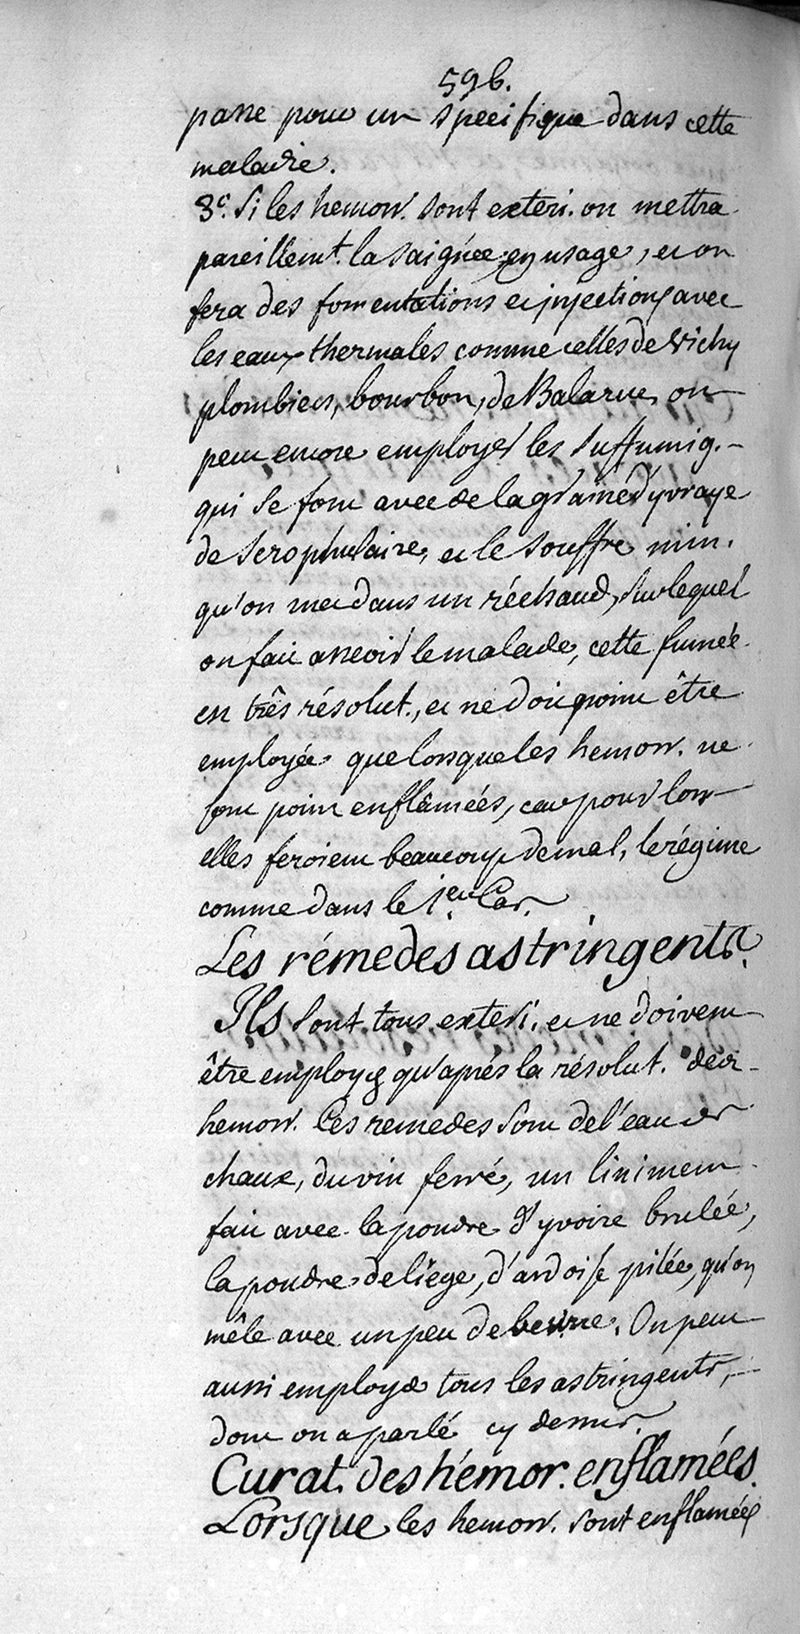 596.
passe pour un specifique dans cette
maladie.
3.° Si les hemorr. sont exteri. on mettra
pareillem.t la saignée en usage, et on
fera des fomentations et injections avec
les eaux thermales comme celles de Vichy
plombiers, bourbon, de Balaruc, on
peut encore employer les suffumig.
qui se font avec de la graine d'yvraye
de scrophulaire, et le souffre min.
qu'on met dans un réchaud, sur lequel
on fait asseoir le malade, cette fumée
est très résolut., et ne doit point être
employée que lorsque les hemorr. ne
sont point enflâmées, car pour lors
elles feroient beaucoup de mal, le régime
comme dans le 1.er Cas.
Les rémedes astringents.
Ils sont tous exteri. et ne doivent
être employés qu'après la résolut. des
hemorr. Ces remedes sont de l'eau de
chaux, du vin ferré, un liniment
fait avec la poudre d'yvoire brulée,
la poudre de liège, d'ardoise pilée, qu'on
mêle avec un peu de beurre. On peut
aussi employer tous les astringents,
dont on a parlé cy dessus.
Curat. des hémor. enflamées.
Lorsque les hemorr. sont enflamées